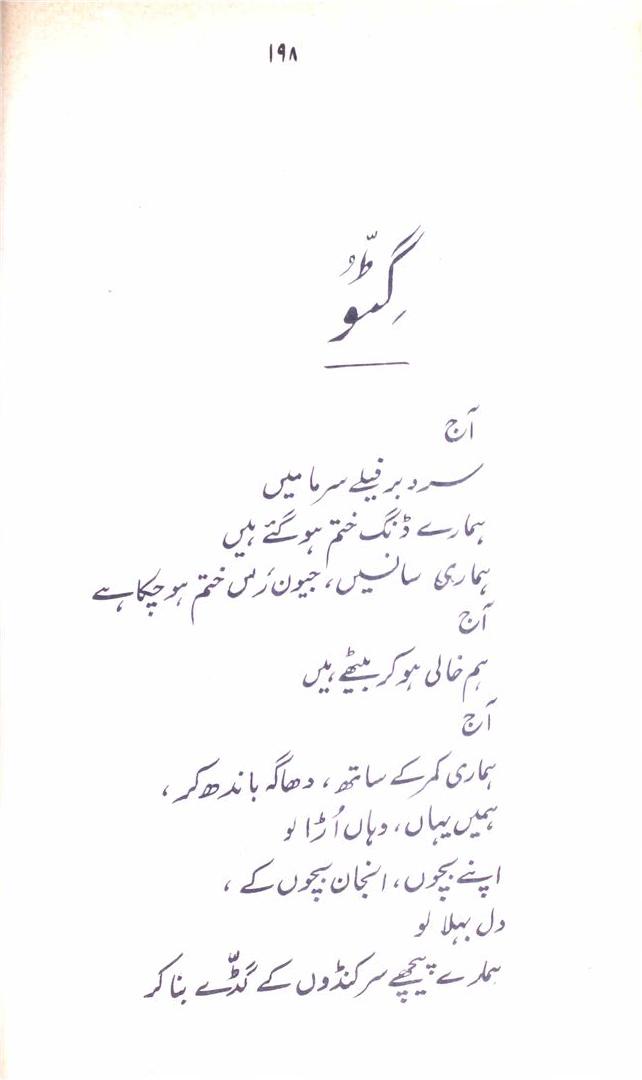 ۱۹۸
گِٹُّو
آج
سرد برفیلے سرما میں
ہمارے ڈنگ ختم ہو گئے ہیں
ہماری سانسیں، جیون رَس ختم ہو چکا ہے
آج
ہم خالی ہو کر بیٹھے ہیں
آج
ہماری کمر کے ساتھ، دھاگہ باندھ کر،
ہمیں یہاں، وہاں اُڑا لو
اپنے بچوں، انجان بچوں کے،
دل بہلا لو
ہمارے پیچھے سرکنڈوں کے گڈّے بنا کر